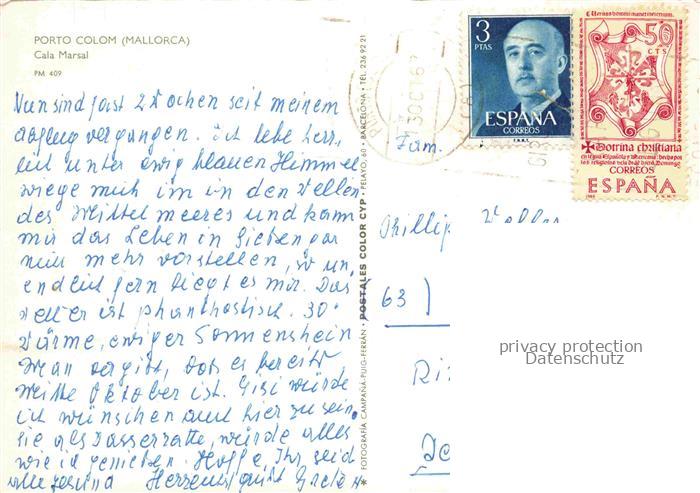 PORTO COLOM (MALLORCA)
Cala Marsal
PM 409
Nun sind fast 2 Wochen seit meinem
Abflug vergangen. Ich lebe herr-
lich unter ewig blauen Himmel
wiege mich im in den Wellen
des Mittelmeeres und kann
mir das Leben in Siebengar
nicht mehr vorstellen, so un-
endlich fern liegt es mir. Das
Wetter ist phanthastisch. 30°
Wärme, ewiger Sonnenschein
Man vergißt, daß es bereits
Mitte Oktober ist. Gisi würde
ich wünschen auch hier zu sein,
sie als Wasserratte, würde alles
wie ich genießen. Hoffe, Ihr seid
alle gesund Herzensgruß
FOTOGRAFIA CAMPAÑÁ-PUIG-FERRÁN • POSTALES COLOR CYP • PELAYO, 60 • BARCELONA • TEL. 236 92 21
3
PTAS
ESPAÑA
CORREOS
F.N.M.T.
50
CTS
Doctrina christiana
CORREOS
ESPAÑA
1966 F.N.M.T.
Fam.
Phillip
63
privacy protection
Datenschutz